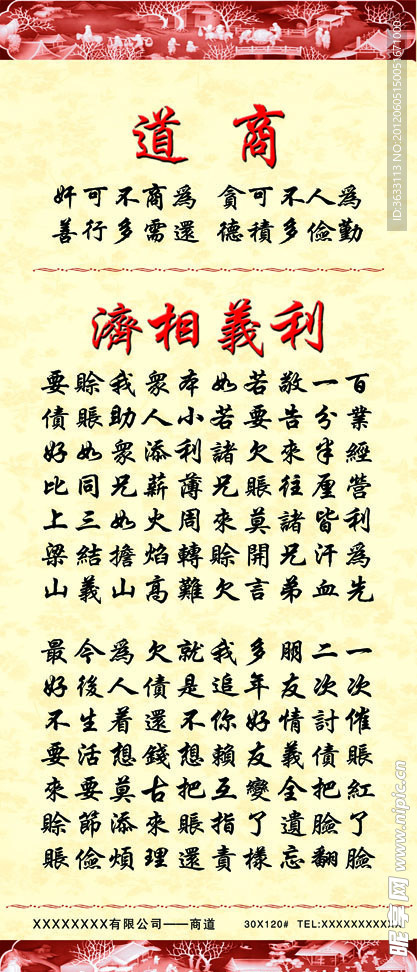 商道
為人不可貪 為商不可奸
勤儉多積德 還需多行善
利義相濟
百業經營利為先
一分半厘皆汗血
敬告來往諸兄弟
若要欠賬莫開言
如若諸兄來賒欠
本小利薄周轉難
衆人添薪火焰高
我助衆兄如擔山
賒賬如同三結義
要債好比上梁山
一次催賬紅了臉
二次討債把臉翻
朋友情義全遺忘
多年好友變了樣
我追你賴互指責
就是不想把賬還
欠債還錢古來理
為人着想莫添煩
今後生活要節儉
最好不要來賒賬
XXXXXXXX有限公司——商道 30X120# TEL:XXXXXXXXXXX
ID:3633113 NO:20120605150051677000
昵享网 www.nipic.cn